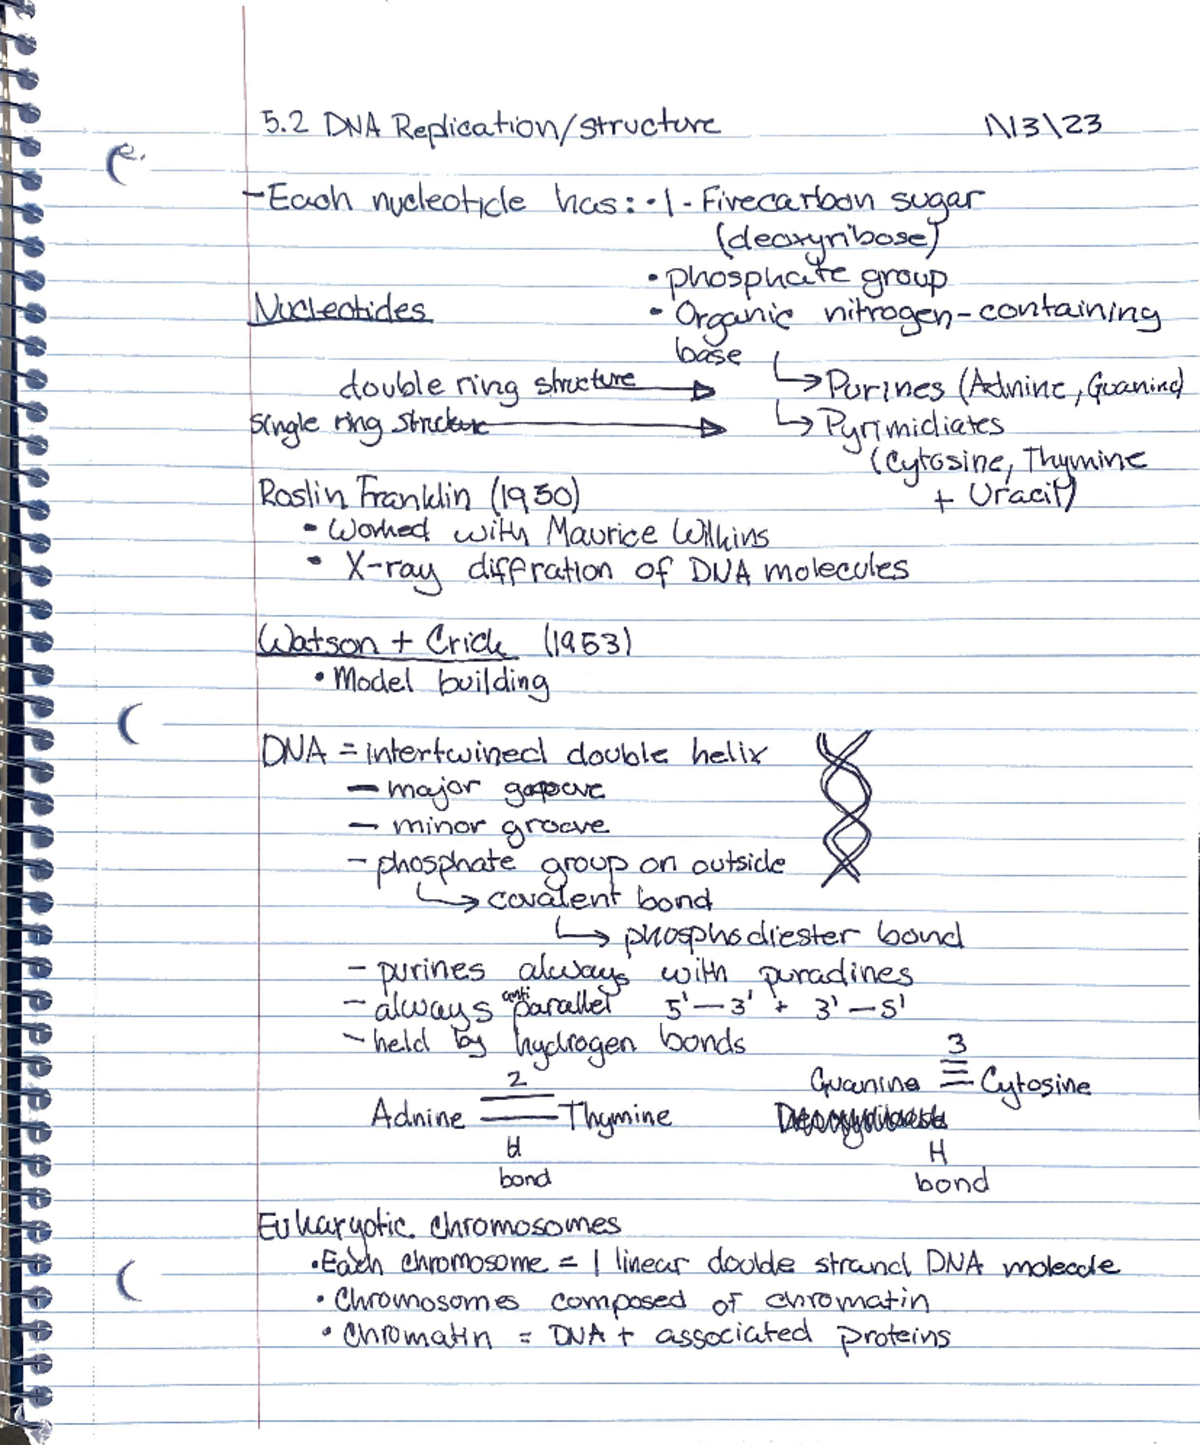 5.2 DNA Replication/structure 1\13\23
-Each nucleotide has: • 1 - Fivecarbon sugar
(deoxyribose)
• phosphate group
Nucleotides • Organic nitrogen-containing
base
double ring structure → ↳ Purines (Adnine, Guanine)
Single ring structure → ↳ Pyrimidiates
(Cytosine, Thymine
+ Uracil)
Roslin Franklin (1950)
• Worked with Maurice Wilkins
• X-ray diffration of DNA molecules
Watson + Crick (1953)
• Model building
DNA = intertwined double helix
- major groove
- minor groove
- phosphate group on outside
↳ covalent bond
↳ phosphodiester bond
- purines always with puradines
- always antiparallel 5'-3' + 3'-5'
- held by hydrogen bonds
2 3
Guanine ≡ Cytosine
Adnine = Thymine
H H
bond bond
Eukaryotic chromosomes
• Each chromosome = 1 linear double strand DNA molecule
• Chromosomes composed of chromatin
• Chromatin = DNA + associated proteins